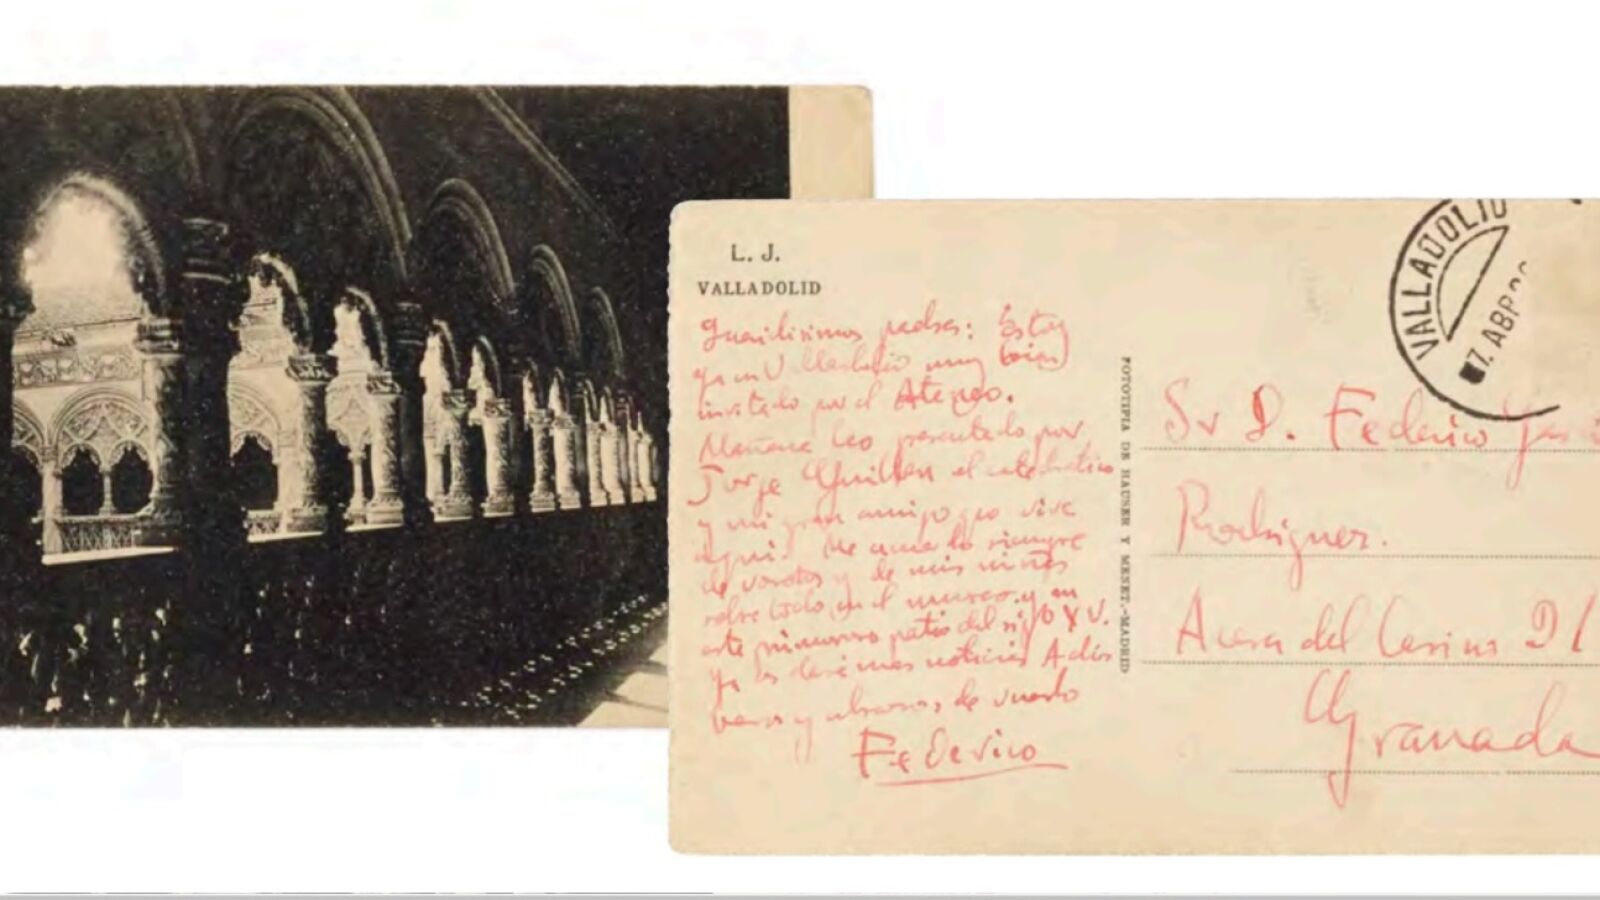 L. J.
VALLADOLID
Queridísimos padres: Estoy
ya en Valladolid muy bien
invitado por el Ateneo.
Mañana leo presentado por
Jorge Guillen el catedratico
y mi gran amigo que vive
aqui. Me acuerdo siempre
de vosotros y de mis niñas
sobre todo en el museo y en
este primoroso patio del siglo XV.
Ya os daré mas noticias Adios
besos y abrazos, de vuestro
Federico
FOTOTIPIA DE HAUSER Y MENET.-MADRID
VALLADOLID
7. ABR
Sr D. Federico
Rodriguez.
Acera del Casino
Granada